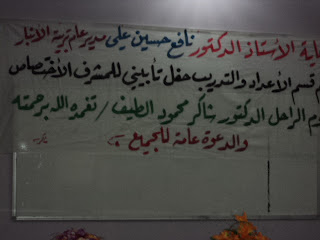 ية الأستاذ الدكتور نافع حسين علي مدير عام تربية الأنبار
قسم الأعداد والتدريب حفل تأبيني للمشرف الأختصاص
الراحل الدكتور شاكر محمود الطيف / تغمده الله برحمته
والدعوة عامة للجميع